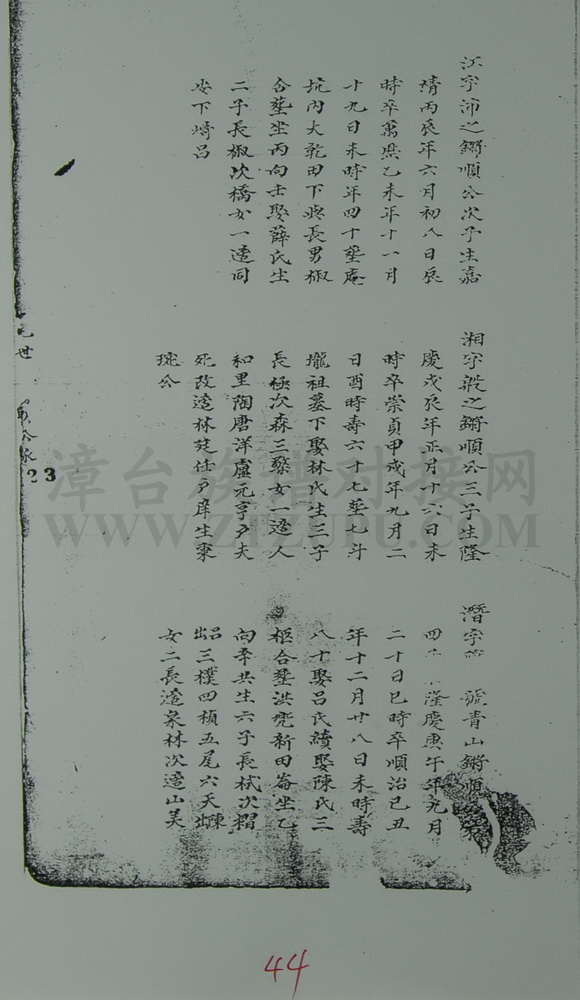 江字沛之鏘順公次子生嘉
靖丙辰年六月初八日辰
時卒萬歷乙未年十一月
十九日未時年四十葬庵
坑內大乾田下與長男椒
合葬坐丙向壬娶薛氏生
二子長椒次橋女一適同
安下崎呂
湘字毅之鏘順公三子生隆
慶戊辰年正月十六日未
時卒崇貞甲戌年九月二
日酉時壽六十七葬七斗
壠祖墓下娶林氏生三子
長極次森三藜女一適人
和里陶唐洋盧元亨夕夫
死改適林廷仕戶庠生棄
琉公
潛字 號青山鏘順
四 隆慶庚午年九月
二十日巳時卒順治己丑
年十二月廿八日未時壽
八十娶呂氏續娶陳氏三
柩合葬洪兜新田崙坐乙
向辛共生六子長栻次榴
呂出三樸四楨五尾六天陳出
女二長適泉林次適山美
九世
23
漳台族谱对接网
WWW.ZTZUPU.COM
44